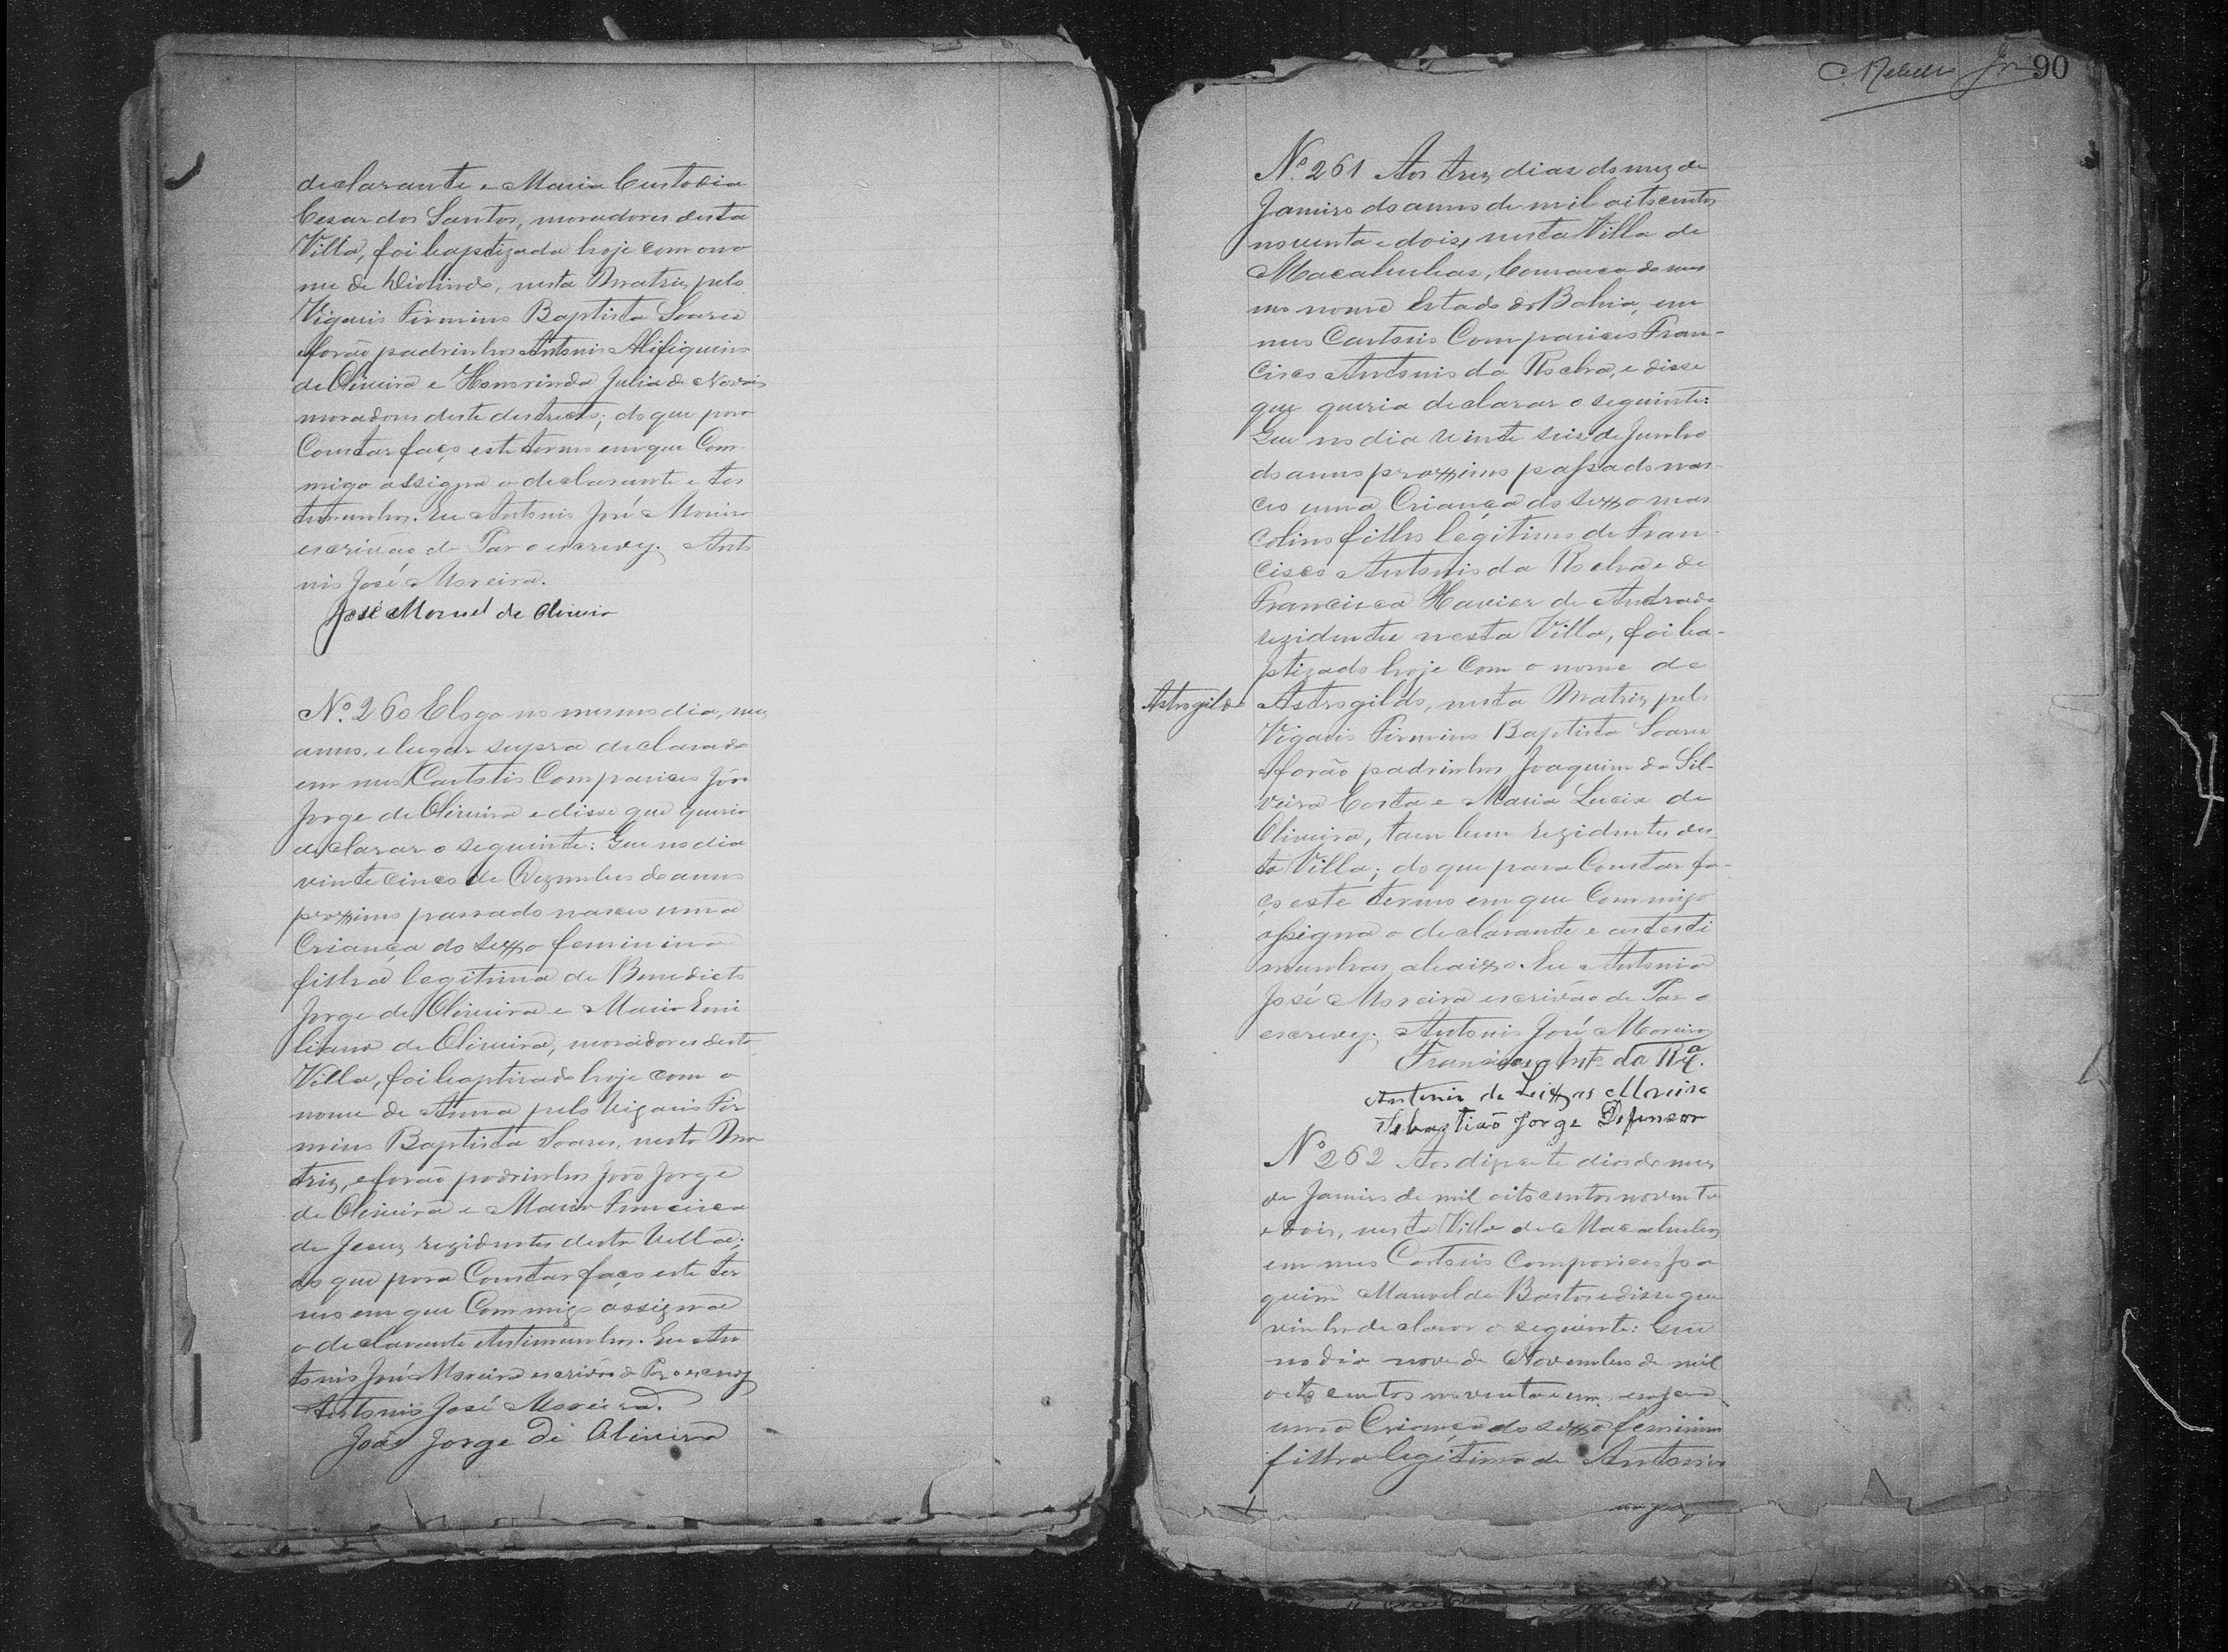 declarante e Maria Custodia
Cesar dos Santos, moradores desta
Villa, foi baptizada hoje com o no
me de Diolindo, nesta Matriz pelo
Vigario Firmino Baptista Soares
e forão padrinhos Antonio
de Oliveira e Honorinda Julia de Novais
moradores deste destricto; do que para
Constar faço este termo em que Com
migo assigna o declarante e tes
temunhas. Eu Antonio José Moreira
escrivão de Paz o escrevy. Anto
nio José Moreira.
José Manuel de Oliveira
Nº 260 E logo no mesmo dia, mez
anno, e lugar supra declarado
em meo Cartorio Compareceo João
Jorge de Oliveira e disse que queria
declarar o seguinte: Que no dia
vinte cinco de Dezembro do anno
proximo passado nasceo uma
Criança do sexo feminino
filha legitima de Benedicto
Jorge de Oliveira e Maria Emi
liana de Oliveira, moradores desta
Villa, foi baptisado hoje com o
nome de Anna pelo Vigario Fir
mino Baptista Soares, nesta Ma
triz, e forão padrinhos João Jorge
de Oliveira e Maria Francisca
de Jesuz rezidentes desta Villa;
do que para Constar faço este ter
mo em que Commigo assigna
o declarante e testimunhas. Eu An
tonio José Moreira escrivão de Paz o escrevy
Antonio José Moreira.
João Jorge di Oliveira
90
Nº 261 Aos trez dias do mez de
Janeiro do anno de mil oitocentos
noventa e dois, nesta Villa de
Macahubas, Comarca do mes
mo nome Estado da Bahia, em
meo Cartorio Compareceo Fran-
cisco Antonio da Rocha, e disse
que queria declarar o seguinte:
Que no dia vinte seis de Junho
do anno proximo passado nas-
ceo uma Criança do sexo mas
colino filho legitimo de Fran-
cisco Antonio da Rocha e de
Francisca Xavier de Andrade
rezidentes nesta Villa, foi ba-
ptizado hoje Com o nome de
Astrogildo Astrogildo, nesta Matriz pelo
Vigario Firmino Baptista Soares
e forão padrinhos Joaquim da Sil-
veira Costa e Maria Lucia de
Oliveira, tambem rezidentes des
ta Villa; do que para Constar fa-
ço este termo em que Commigo
assigna o declarante e as testi
munhas abaixo. Eu Antonio
José Moreira escrivão de Paz o
escrevy. Antonio José Moreira
Francisco Antº da Rª.
Antonio de Moreira
Sebastião Jorge Defensor
Nº 262 Aos dizsete dias do mez
de Janeiro de mil oitocentos noventa
e dois, nesta Villa de Macahubas
em meo Cartorio Compareceo Joa
quim Manoel de Bastos e disse que
vinha declarar o seguinte: Que
no dia nove de Novembro de mil
oitocentos noventa e um, nasceo
uma Criança do sexo feminino
filha legitima de Antonio